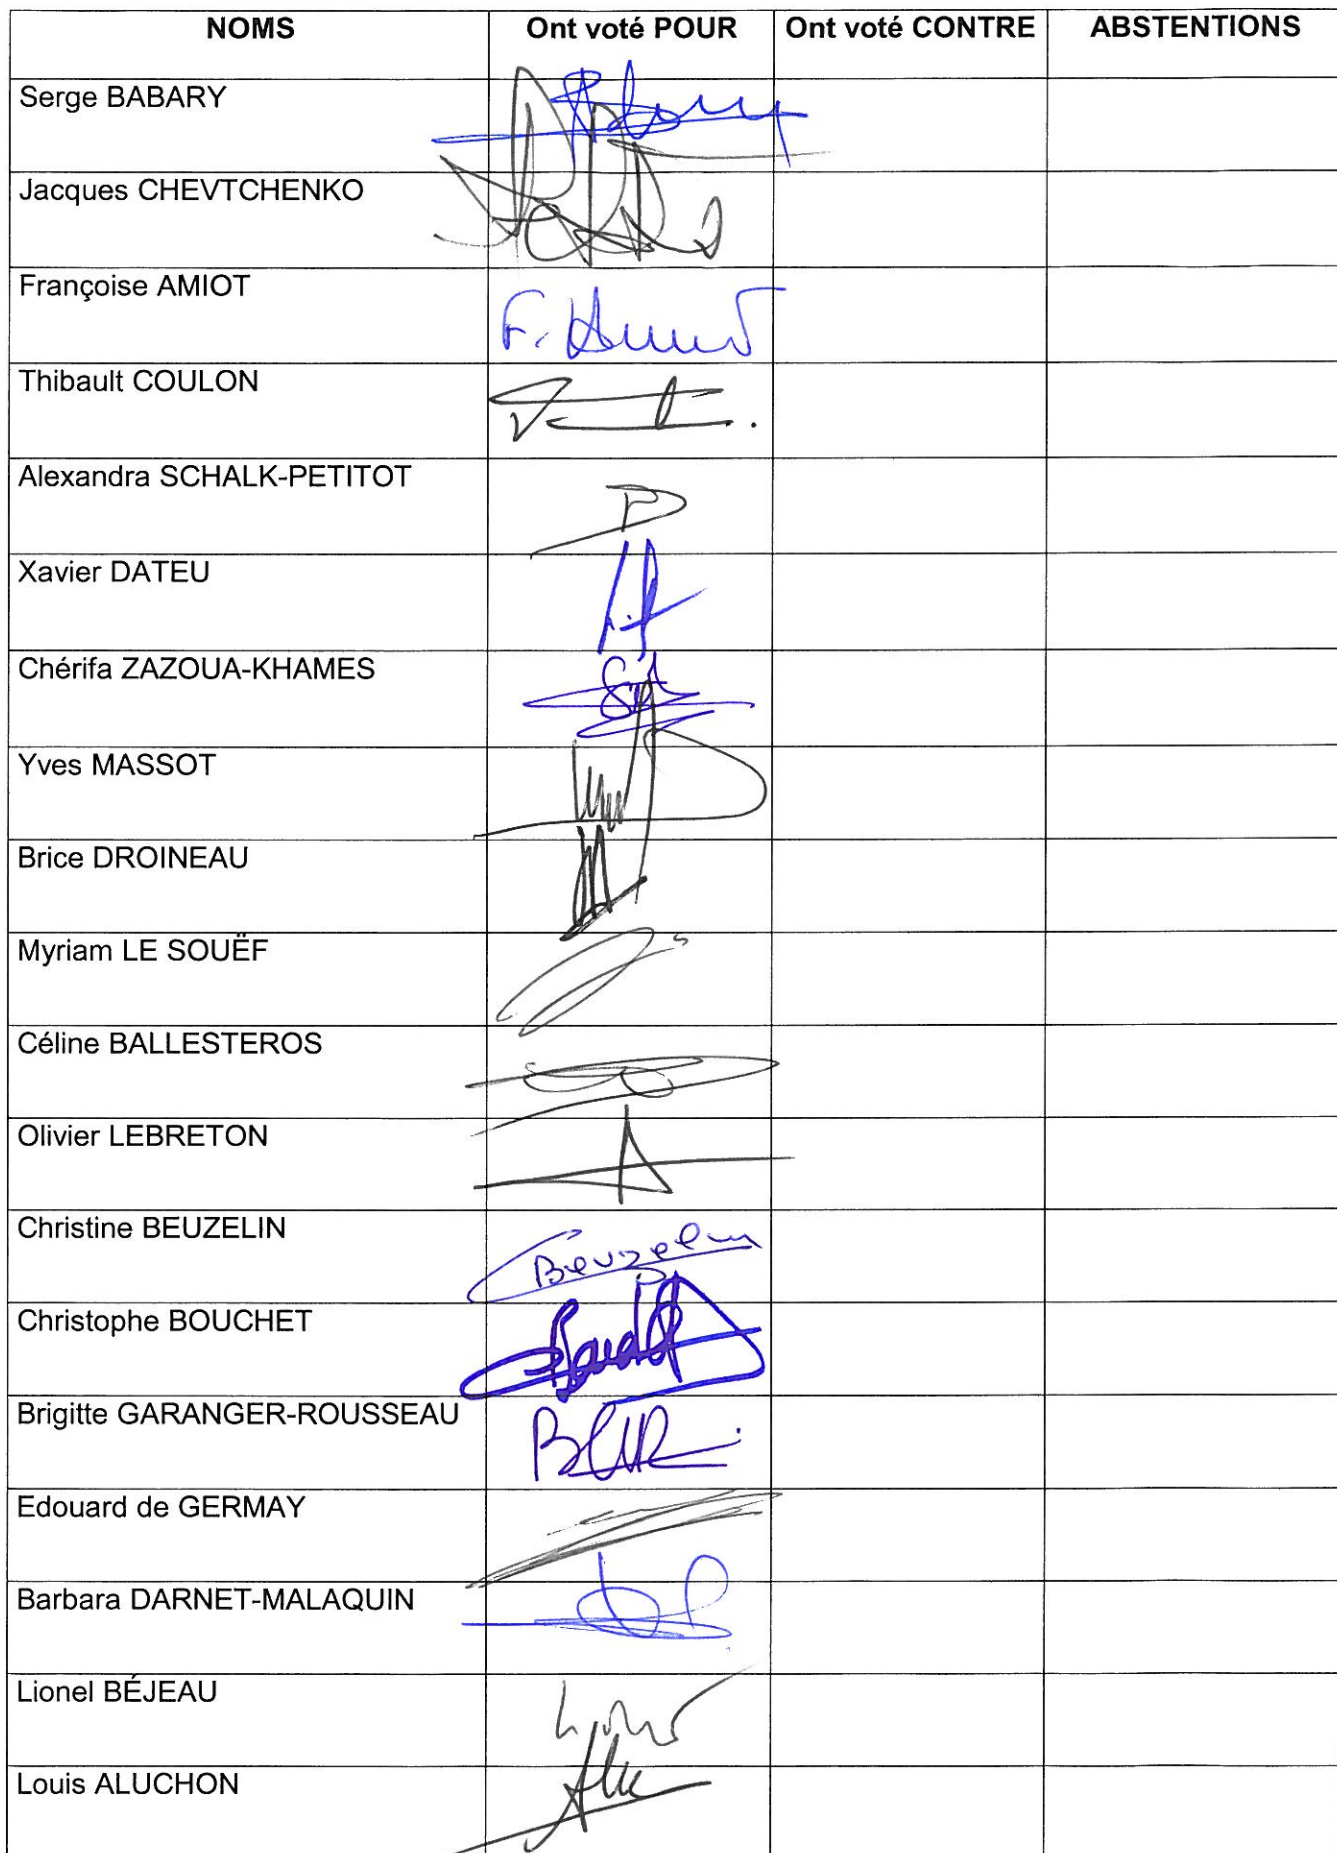 NOMS Ont voté POUR Ont voté CONTRE ABSTENTIONS
Serge BABARY
Jacques CHEVTCHENKO
Françoise AMIOT F. Amiot
Thibault COULON
Alexandra SCHALK-PETITOT
Xavier DATEU
Chérifa ZAZOUA-KHAMES
Yves MASSOT
Brice DROINEAU
Myriam LE SOUËF
Céline BALLESTEROS
Olivier LEBRETON
Christine BEUZELIN Beuzelin
Christophe BOUCHET
Brigitte GARANGER-ROUSSEAU
Edouard de GERMAY
Barbara DARNET-MALAQUIN
Lionel BÉJEAU
Louis ALUCHON